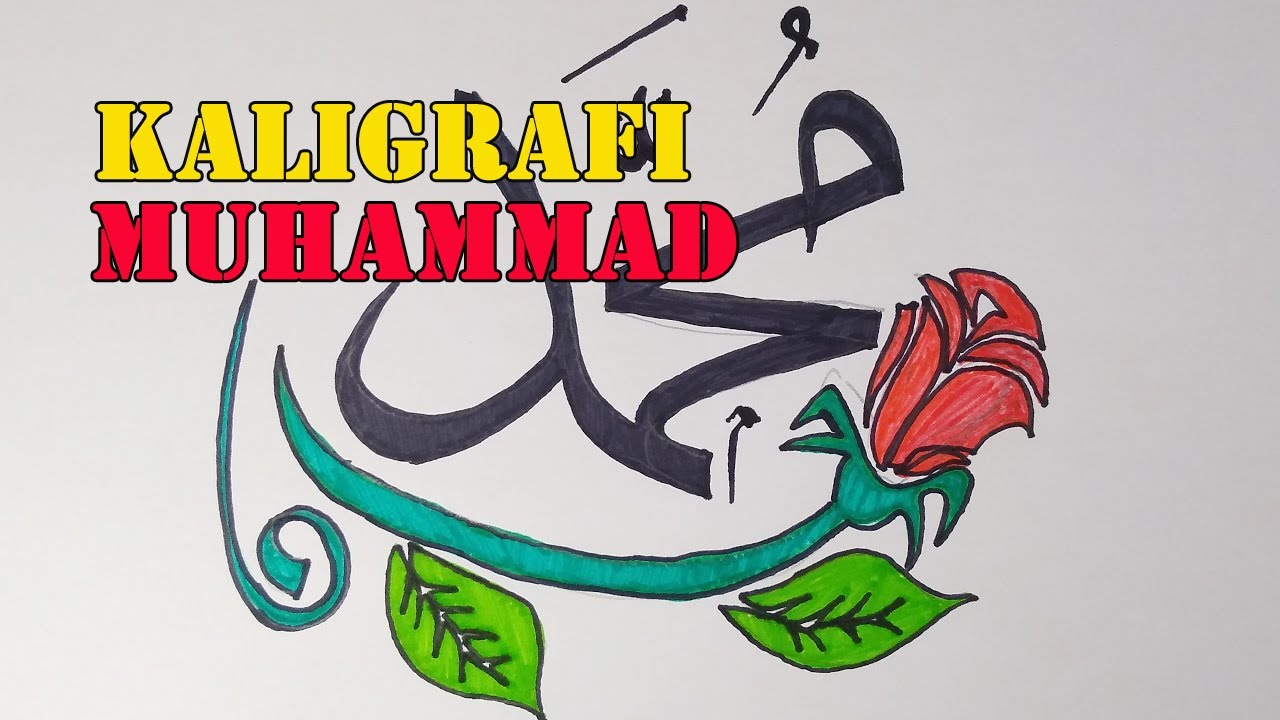 KALIGRAFI
MUHAMMAD
مُحَمَّد